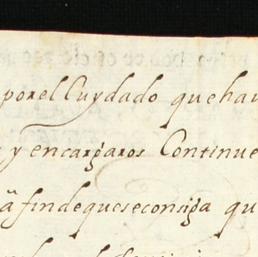 por el Cuydado que hau
y encargaros Continue
ā fin de que se consiga qu